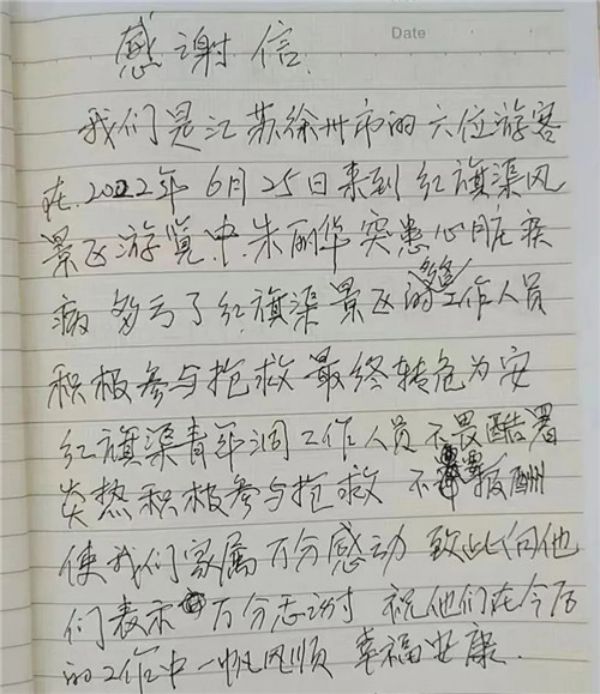 Date
感谢信
我们是江苏徐州市的六位游客
在.2022年6月25日来到红旗渠风
景区游览中.朱丽华突患心脏疾
病多亏了红旗渠景区的工作人员
积极参与抢救最终转危为安
红旗渠青年洞工作人员不畏酷署
炎热积极参与抢救不要报酬
使我们家属万分感动致此向他
们表示万分志谢祝他们在今后
的工作中一帆风顺幸福安康.